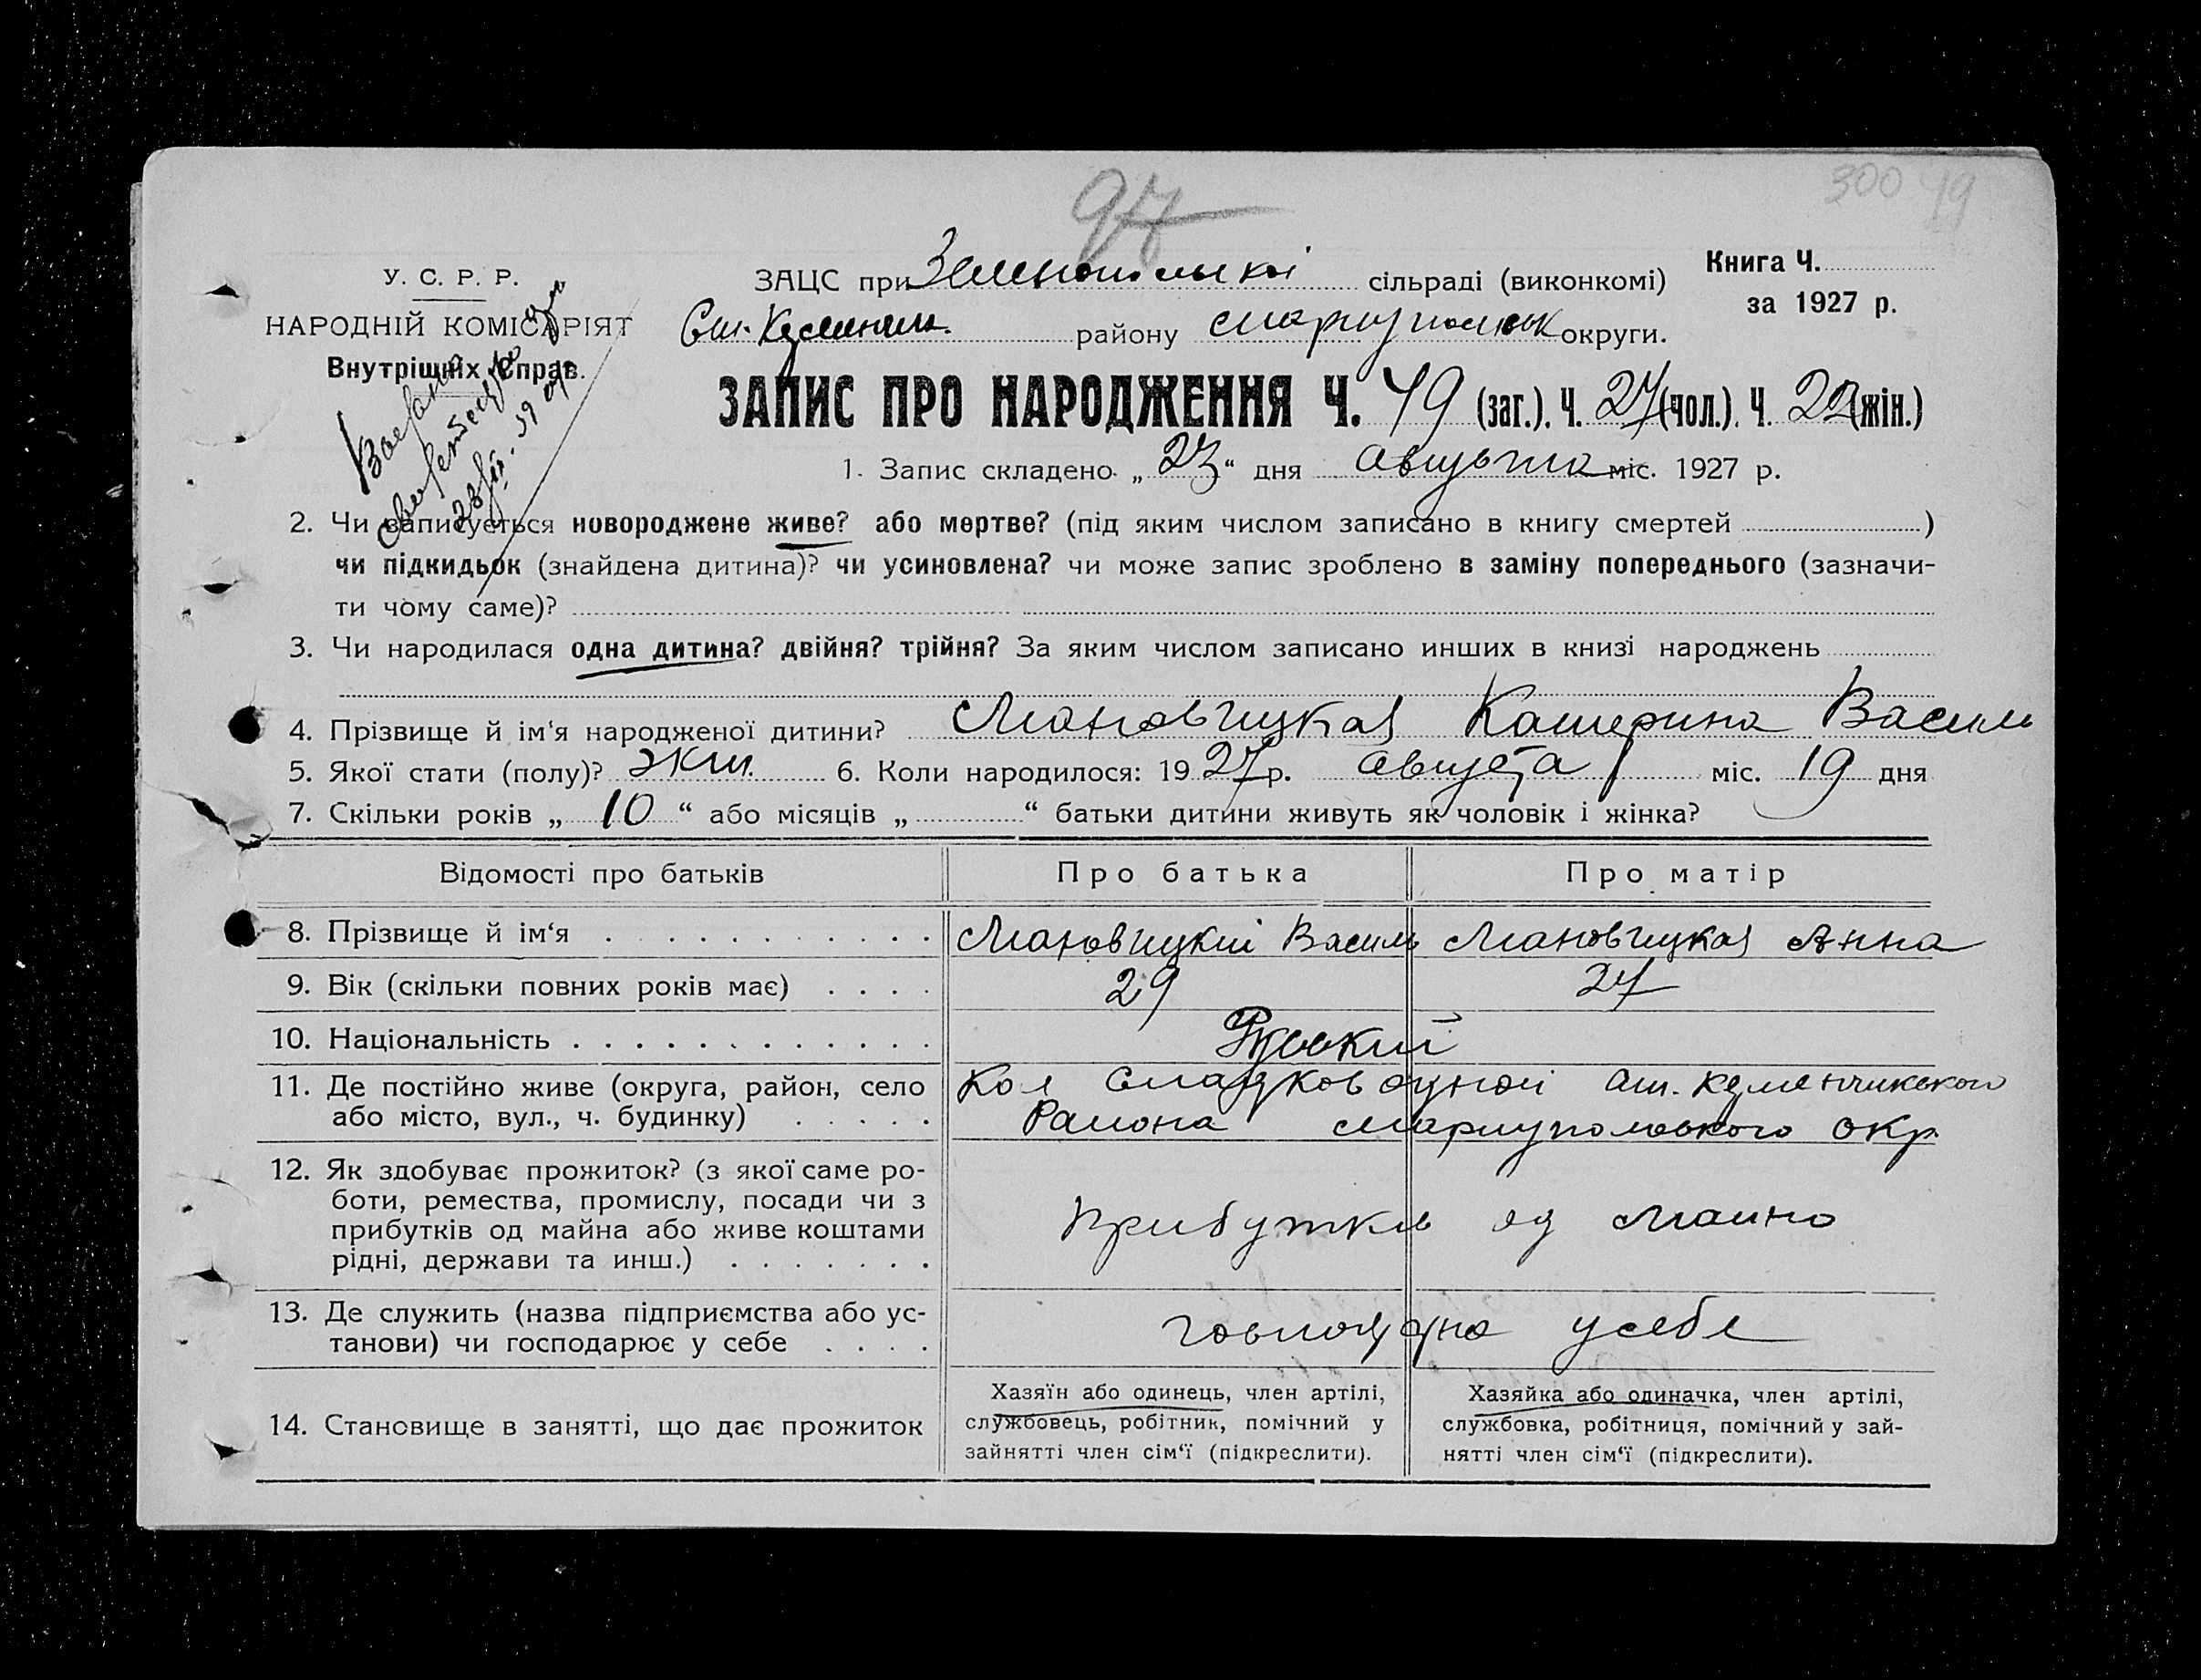 97
300 49
У. С. Р. Р.
НАРОДНІЙ КОМІСАРІЯТ
Внутрішніх Справ.
ЗАЦС при Зеленопільскі сільраді (виконкомі)
Книга Ч.
за 1927 р.
району округи.
ЗАПИС ПРО НАРОДЖЕННЯ Ч. 49 (заг.). Ч. 27 (чол.). Ч. 22 (жін.)
1. Запис складено „23“ дня Августа міс. 1927 р.
2. Чи записується новороджене живе? або мертве? (під яким числом записано в книгу смертей )
чи підкидьок (знайдена дитина)? чи усиновлена? чи може запис зроблено в заміну попереднього (зазначи-
ти чому саме)?
3. Чи народилася одна дитина? двійня? трійня? За яким числом записано инших в книзі народжень
4. Прізвище й ім‘я народженої дитини? Катерина Василь
5. Якої стати (полу)? 6. Коли народилося: 1927 р. Августа міс. 19 дня
7. Скільки років „10“ або місяців „ “ батьки дитини живуть як чоловік і жінка?
Відомості про батьків Про батька Про матір
8. Прізвище й ім‘я Василь Анна
9. Вік (скільки повних років має) 29 27
10. Національність Руский
11. Де постійно живе (округа, район, село Кол Сладководной
або місто, вул., ч. будинку) Района Мариупольского окр.
12. Як здобуває прожиток? (з якої саме ро-
боти, ремества, промислу, посади чи з
прибутків од майна або живе коштами Прибутків од майна
рідні, держави та инш.)
13. Де служить (назва підприємства або ус-
танови) чи господарює у себе у себе
14. Становище в занятті, що дає прожиток
Хазяїн або одинець, член артілі,
службовець, робітник, помічний у
зайнятті член сім‘ї (підкреслити).
Хазяйка або одиначка, член артілі,
службовка, робітниця, помічний у зай-
нятті член сім‘ї (підкреслити).